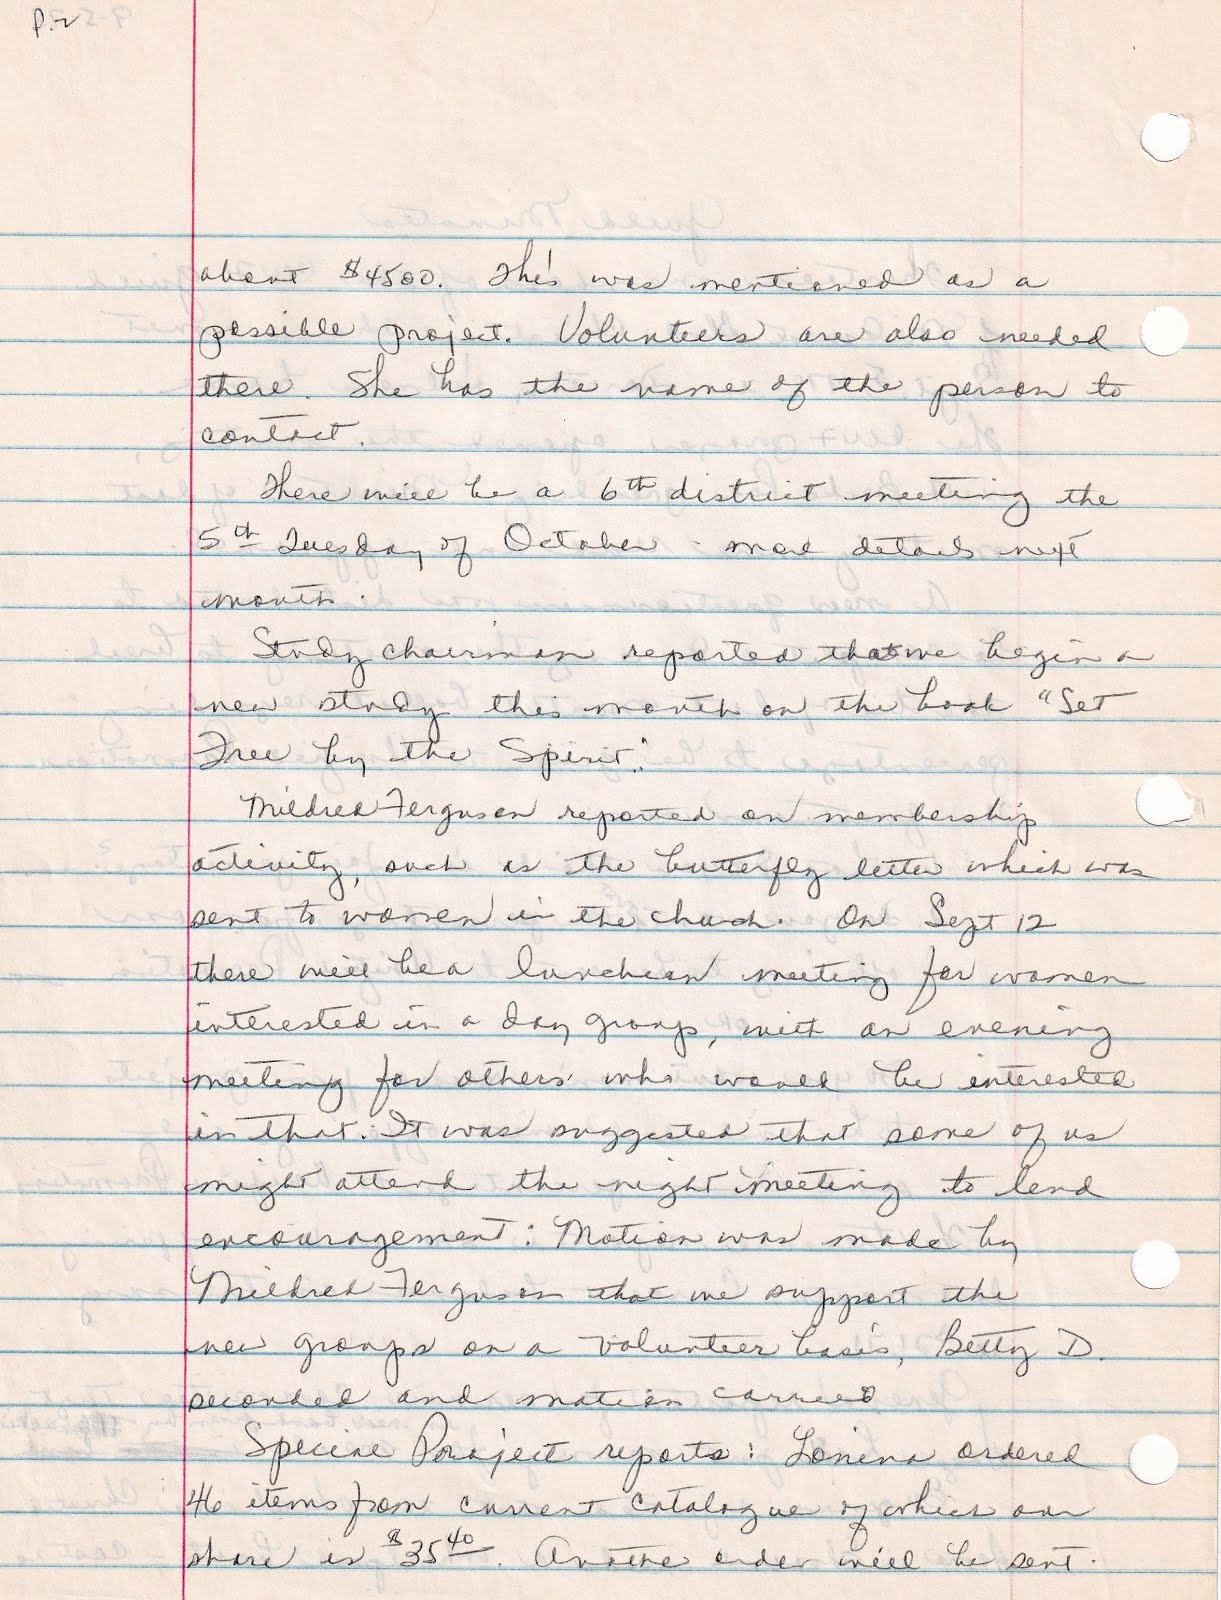 P.2
about $4500. This was mentioned as a
possible project. Volunteers are also needed
there. She has the name of the person to
contact.
There will be a 6th district meeting the
5th Tuesday of October - more details next
month.
Study chairman reported that we begin a
new study this month on the book "Set
Free by the Spirit."
Mildred Ferguson reported on membership
activity, such as the butterfly letter which was
sent to women in the church. On Sept 12
there will be a luncheon meeting for women
interested in a day group, with an evening
meeting for others who would be interested
in that. It was suggested that some of us
might attend the night meeting to lend
encouragement: Motion was made by
Mildred Ferguson that we support the
new groups on a volunteer basis, Betty D.
seconded and motion carried
Special Project reports: ordered
46 items from current catalogue of which our
share is $35.40. Another order will be sent.